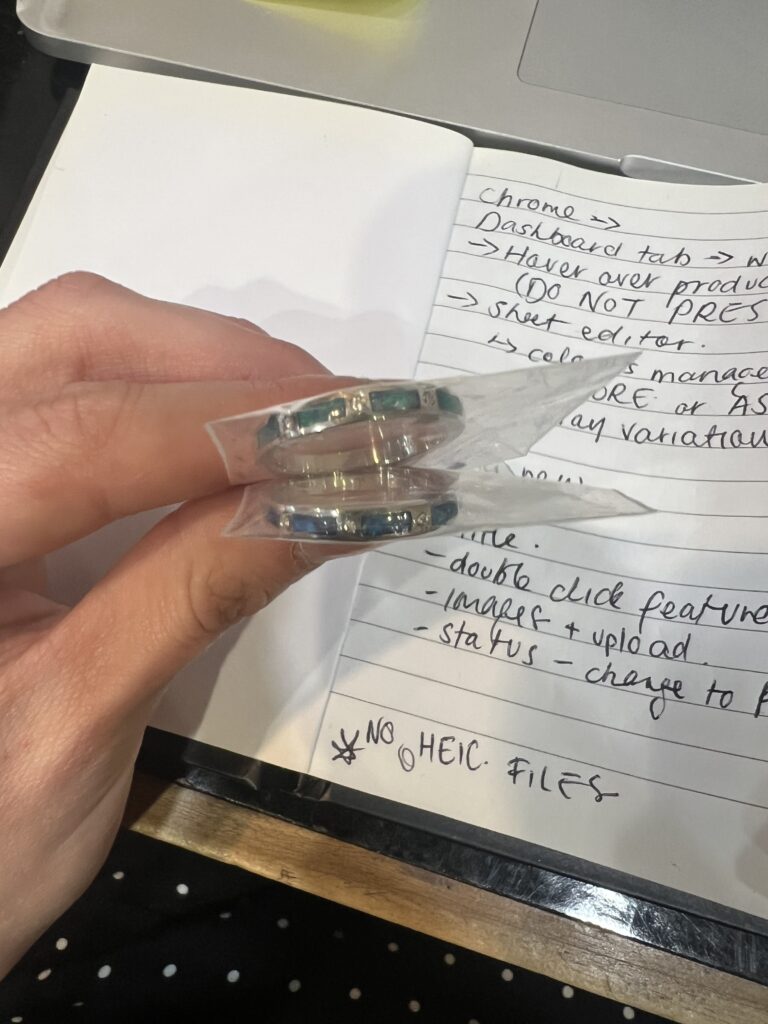 Chrome →
Dashboard tab → W
→ Hover over produc
(DO NOT PRES
→ Sheet editor.
↳ s manage
ORE or AS
ay variation
- double click feature
- images + upload.
- status - change to
* NO HEIC. FILES